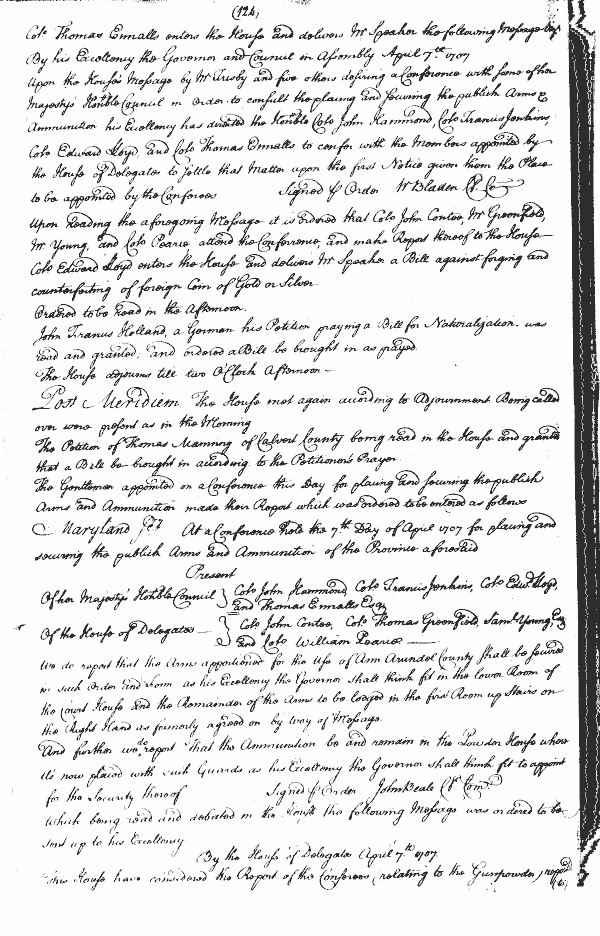 (124)
Colo Thomas Ennalls enters the House and delivers Mr Speaker the following Message vizt
By his Excellency the Governor and Council in Assembly April 7th 1707
Upon the Houses Message by Mr Frisby and five others desiring a Conference with some of her
Majestys Honble Council in order to consult the placing and securing the publick Arms &
Ammunition his Excellency has directed the Honble Colo John Hammond, Colo Francis Jenkins,
Colo Edward Lloyd, and Colo Thomas Ennalls to confer with the Members appointed by
the House of Delegates to settle that Matter upon the first Notice given them the Place
to be appointed by the Conferees Signed p Order W Bladen Cl Co
Upon Reading the aforegoing Message it is ordered that Colo John Contee, Mr Greenfield,
Mr Young, and Colo Pearce attend the Conference, and make Report thereof to the House
Colo Edward Lloyd enters the House and delivers Mr Speaker a Bill against forging and
counterfeiting of foreign Coin of Gold or Silver.
Ordered to be read in the Afternoon.
John Francis Holland, a German his Petition praying a Bill for Naturalization. was
read and granted, and ordered a Bill be brought in as prayed
The House adjourns till two O'Clock Afternoon —
Post Meridiem The House met again according to Adjournment Being called
over were present as in the Morning
The Petition of Thomas Manning of Calvert County being read in the House and granted
that a Bill be brought in according to the Petitioner's Prayer.
The Gentlemen appointed on a Conference this Day for placing and securing the publick
Arms and Ammunition made their Report which was ordered to be entered as follows
Maryland Sct At a Conference held the 7th Day of April 1707 for placing and
securing the publick Arms and Ammunition of the Province aforesaid
Present
Of her Majestys Honble Council } Colo John Hammond, Colo Francis Jenkins, Colo Edwd Lloyd,
and Thomas Ennalls Esqr
Of the House of Delegates — } Colo John Contee, Colo Thomas Greenfield, Saml Young, Esq
and Colo William Pearce —
We do report that the Arms apportioned for the Use of Ann Arundel County shall be secured
in such Order and Form as his Excellency the Governor shall think fit in the lower Room of
the Court House and the Remainder of the Arms to be lodged in the first Room up Stairs on
the Right Hand as formerly agreed on by way of Message.
And further we do report That the Ammunition be and remain in the Powder House where
its now placed with such Guards as his Excellency the Governor shall think fit to appoint
for the Security thereof Signed p Order John Beale Cl Com
Which being read and debated in the House the following Message was ordered to be
sent up to his Excellency
By the House of Delegates April 7th 1707.
This House have considered the Report of the Conferees, relating to the Gunpowder,